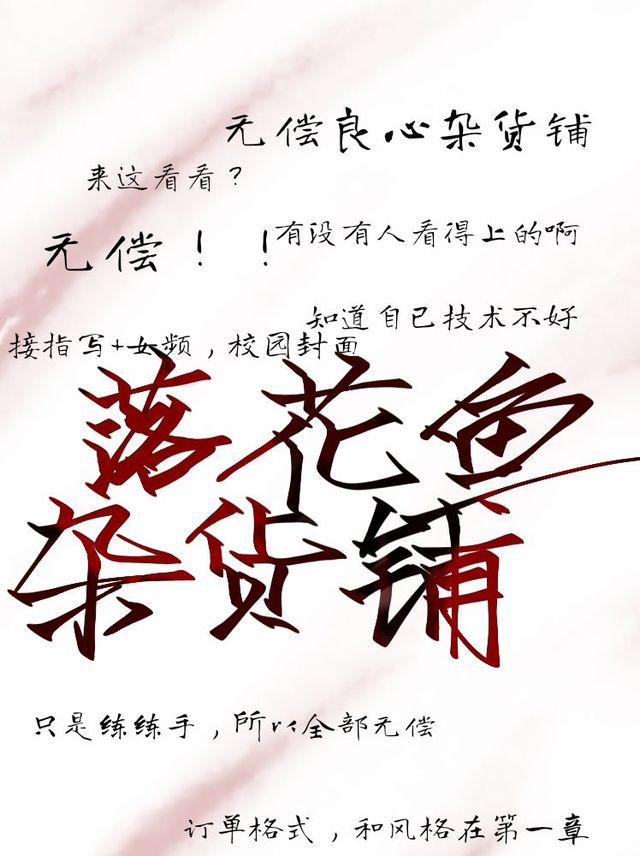 无偿良心杂货铺
来这看看？
有没有人看得上的啊
无偿！！
知道自己技术不好
接指写+女频，校园封面
落花鱼
杂货铺
只是练练手，所以全部无偿
订单格式，和风格在第一章